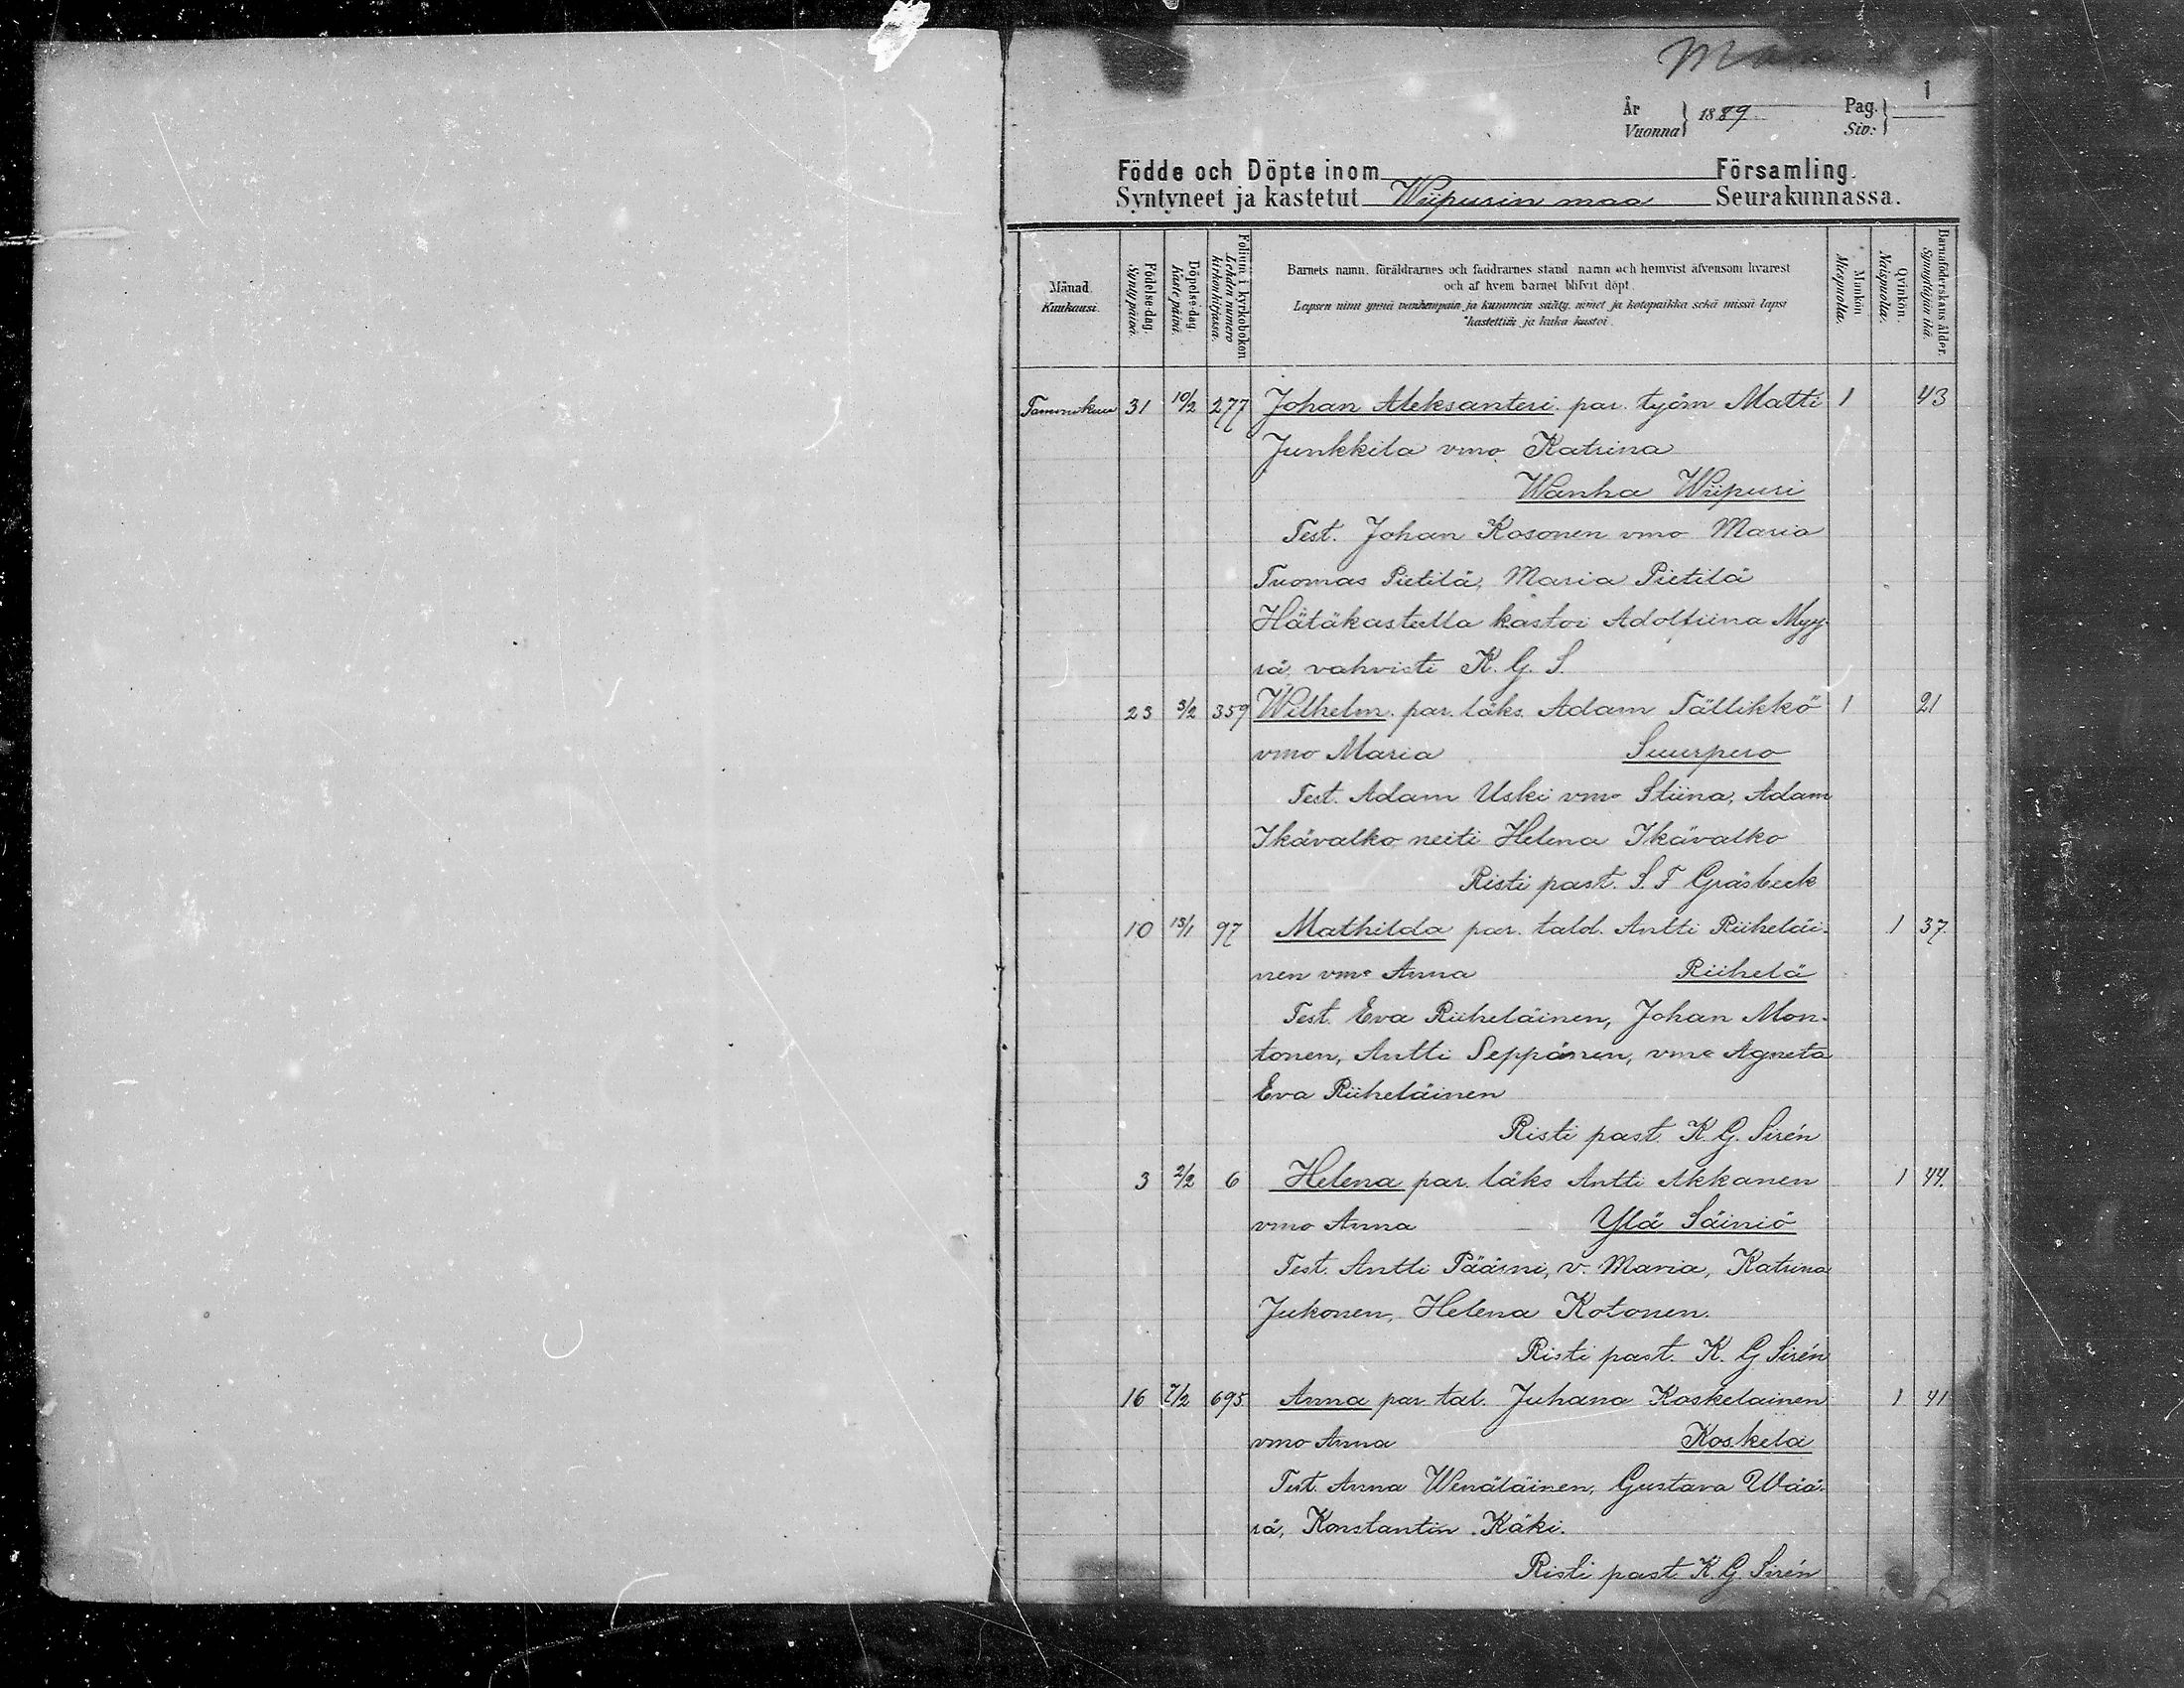 1
År
Vuonna } 1889 Pag.
Siv: }
Födde och Döpte inom Församling.
Syntyneet ja kastetut Wiipurin maa Seurakunnassa.
Månad. Kuukausi.
Födelse-dag. Syntypäivä.
Döpelse-dag. Kastepäivä.
Folium i kyrkoboken. Lehden numero kirkonkirjassa.
Barnets namn, föräldrarnes och faddrarnes stånd namn och hemvist äfvensom hvarest
och af hvem barnet blifvit döpt.
Lapsen nimi ynnä vanhempain ja kummein sääty, nimet ja kotopaikka sekä missä lapsi
kastettiin ja kuka kastoi.
Mankön. Miespuolia.
Qvinkön. Naispuolia.
Barnaföderskans ålder. Synnyttäjän ikä.
Tammikuu 31 10/2 277 Johan Aleksanteri par. työm Matti 1 43
Junkkila vmo Katrina
Wanha Wiipuri
Test. Johan Kosonen vmo Maria
Tuomas Pietilä, Maria Pietilä
Hätäkasteella kastoi Adolfiina Myy-
rä, vahvisti K. G. S.
23 3/2 359 Wilhelm par. läks. Adam Tällikkö 1 21
vmo Maria Suurpero
Test. Adam Uski vmo Stiina, Adam
Ikävalko neiti Helena Ikävalko
Risti past. S. F Gräsbeck
10 13/1 97 Mathilda par. tald. Antti Riiheläi- 1 37.
nen vmo Anna Riihelä
Test. Eva Riiheläinen, Johan Mon-
tonen, Antti Seppänen, vmo Agneta
Eva Riiheläinen
Risti past. K. G. Sirén
3 2/2 6 Helena par. läks Antti Akkanen 1 44.
vmo Anna Ylä Säiniö
Test. Antti Päärni, v. Maria, Katrina
Jukonen, Helena Kotonen.
Risti past. K. G Sirén
16 7/2 695 Anna par. tal. Juhana Koskelainen 1 41
vmo Anna Koskela
Test. Anna Wenäläinen, Gustava Wää-
rä, Konstantin Käki.
Risti past. K. G. Sirén